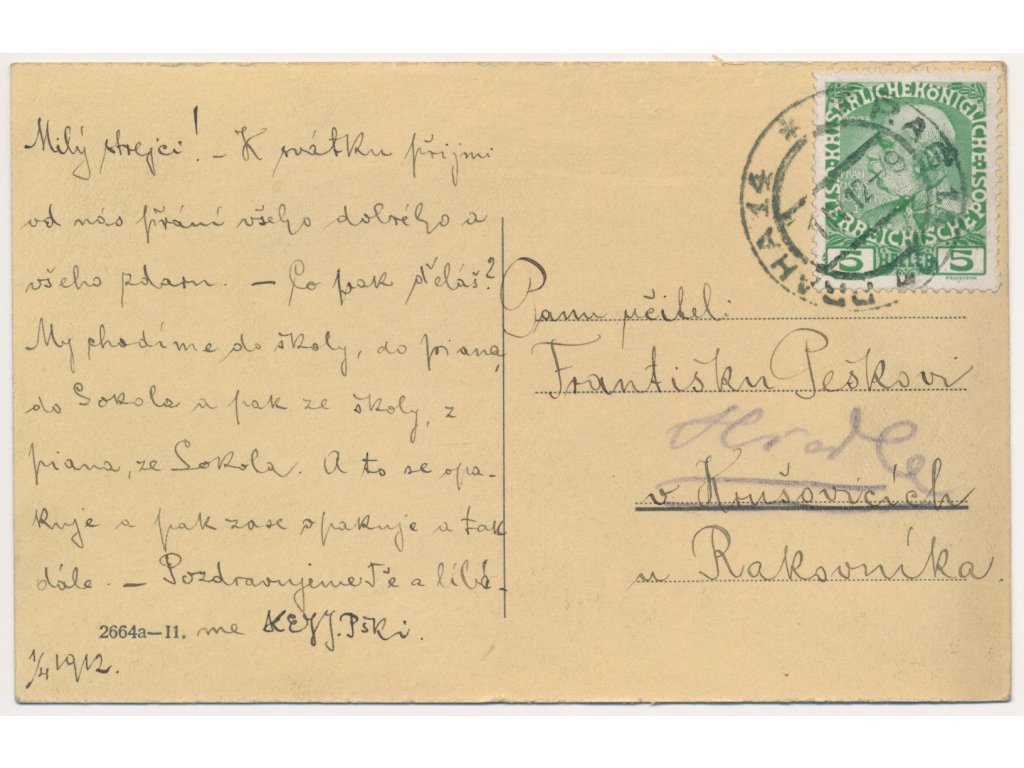 Milý strejci! – K svátku přijmi
od nás přání všeho dobrého a
všeho zdaru. – Co pak děláš?
My chodíme do školy, do piana,
do Sokola a pak ze školy, z
piana, ze Sokola. A to se opa-
kuje a pak zase opakuje a tak
dále. – Pozdravujeme Tě a líbá-
me
2664a–II.
1/4 1912.
KAISERLICHE KÖNIGLICHE
ÖSTERREICHISCHE POST
5 HELLER 5
PRAHA 14
Panu učitel.
Františku Peškovi
v Krušovicích
u Rakovníka.